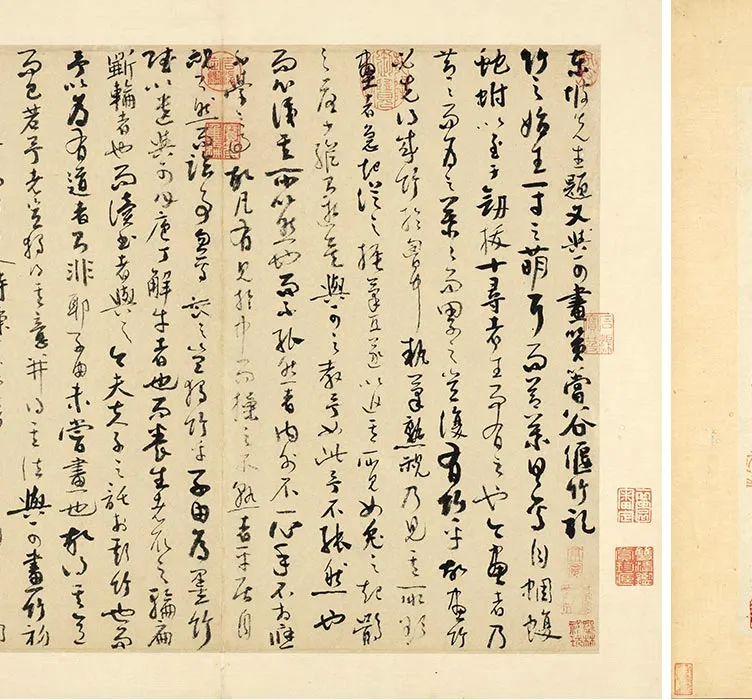 東坡先生題文與可畫篔簹谷偃竹記
竹之始生一寸之萌耳而節葉具焉自蜩蝮
蛇蚹以至于劍拔十尋者生而有之也今畫者乃
節節而為之葉葉而累之豈復有竹乎故畫竹
必先得成竹於胸中執筆熟視乃見其所欲
畫者急起從之振筆直遂以追其所見如兔之起鶻
之落少縱則逝矣與可之教予如此予不能然也
而心識其所以然也而不能然者內外不一心手不相應
不學之過故凡有見於中而操之不熟者平居自
視了然而臨事忽焉喪之豈獨竹乎子由為墨竹
賦以遺與可曰庖丁解牛者也而養生者取之輪扁
斲輪者也而讀書者與之今夫夫子之託於斯竹也而
予以為有道者則非耶子由未嘗畫也故得其意
而已若予者豈獨得其意并得其法與可畫竹初